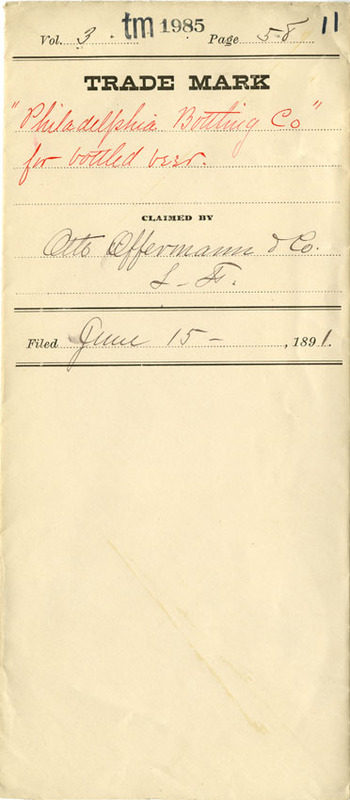 Vol. 3. tm 1985 Page 58 11
TRADE MARK
"Philadelphia Bottling Co"
for bottled beer.
CLAIMED BY
Otto Offermann & Co.
S. F.
Filed June 15 - , 1891.